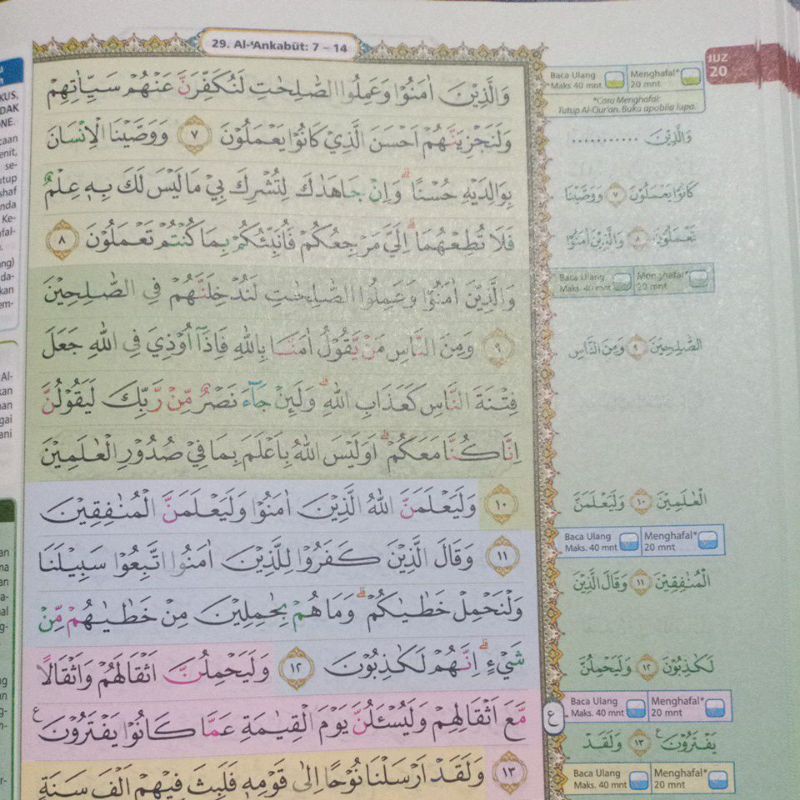 29. Al-'Ankabūt: 7 – 14
JUZ
20
وَالَّذِيْنَ اٰمَنُوْا وَعَمِلُوا الصّٰلِحٰتِ لَنُكَفِّرَنَّ عَنْهُمْ سَيِّاٰتِهِمْ
وَلَنَجْزِيَنَّهُمْ اَحْسَنَ الَّذِيْ كَانُوْا يَعْمَلُوْنَ ٧ وَوَصَّيْنَا الْاِنْسَانَ
بِوَالِدَيْهِ حُسْنًا ۗوَاِنْ جَاهَدٰكَ لِتُشْرِكَ بِيْ مَا لَيْسَ لَكَ بِهٖ عِلْمٌ
فَلَا تُطِعْهُمَا ۗاِلَيَّ مَرْجِعُكُمْ فَاُنَبِّئُكُمْ بِمَا كُنْتُمْ تَعْمَلُوْنَ ٨
وَالَّذِيْنَ اٰمَنُوْا وَعَمِلُوا الصّٰلِحٰتِ لَنُدْخِلَنَّهُمْ فِى الصّٰلِحِيْنَ
٩ وَمِنَ النَّاسِ مَنْ يَّقُوْلُ اٰمَنَّا بِاللّٰهِ فَاِذَآ اُوْذِيَ فِى اللّٰهِ جَعَلَ
فِتْنَةَ النَّاسِ كَعَذَابِ اللّٰهِ ۗوَلَىِٕنْ جَاۤءَ نَصْرٌ مِّنْ رَّبِّكَ لَيَقُوْلُنَّ
اِنَّا كُنَّا مَعَكُمْ ۗاَوَلَيْسَ اللّٰهُ بِاَعْلَمَ بِمَا فِيْ صُدُوْرِ الْعٰلَمِيْنَ
١٠ وَلَيَعْلَمَنَّ اللّٰهُ الَّذِيْنَ اٰمَنُوْا وَلَيَعْلَمَنَّ الْمُنٰفِقِيْنَ
١١ وَقَالَ الَّذِيْنَ كَفَرُوْا لِلَّذِيْنَ اٰمَنُوا اتَّبِعُوْا سَبِيْلَنَا
وَلْنَحْمِلْ خَطٰيٰكُمْ ۗوَمَا هُمْ بِحٰمِلِيْنَ مِنْ خَطٰيٰهُمْ مِّنْ
شَيْءٍ ۗاِنَّهُمْ لَكٰذِبُوْنَ ١٢ وَلَيَحْمِلُنَّ اَثْقَالَهُمْ وَاَثْقَالًا
مَّعَ اَثْقَالِهِمْ وَلَيُسْـَٔلُنَّ يَوْمَ الْقِيٰمَةِ عَمَّا كَانُوْا يَفْتَرُوْنَ ࣖ
١٣ وَلَقَدْ اَرْسَلْنَا نُوْحًا اِلٰى قَوْمِهٖ فَلَبِثَ فِيْهِمْ اَلْفَ سَنَةٍ
ع
Baca Ulang Menghafal*
Maks 40 mnt 20 mnt
*Cara Menghafal:
Tutup Al-Qur'an. Buka apabila lupa.
وَالَّذِيْنَ ...........
كَانُوْا يَعْمَلُوْنَ ٧ وَوَصَّيْنَا
تَعْمَلُوْنَ ٨ وَالَّذِيْنَ اٰمَنُوْا
Baca Ulang Menghafal*
Maks. 40 mnt 20 mnt
الصّٰلِحِيْنَ ٩ وَمِنَ النَّاسِ
الْعٰلَمِيْنَ ١٠ وَلَيَعْلَمَنَّ
Baca Ulang Menghafal*
Maks. 40 mnt 20 mnt
الْمُنٰفِقِيْنَ ١١ وَقَالَ الَّذِيْنَ
لَكٰذِبُوْنَ ١٢ وَلَيَحْمِلُنَّ
Baca Ulang Menghafal*
Maks. 40 mnt 20 mnt
يَفْتَرُوْنَ ࣖ ١٣ وَلَقَدْ
Baca Ulang Menghafal*
Maks. 40 mnt 20 mnt